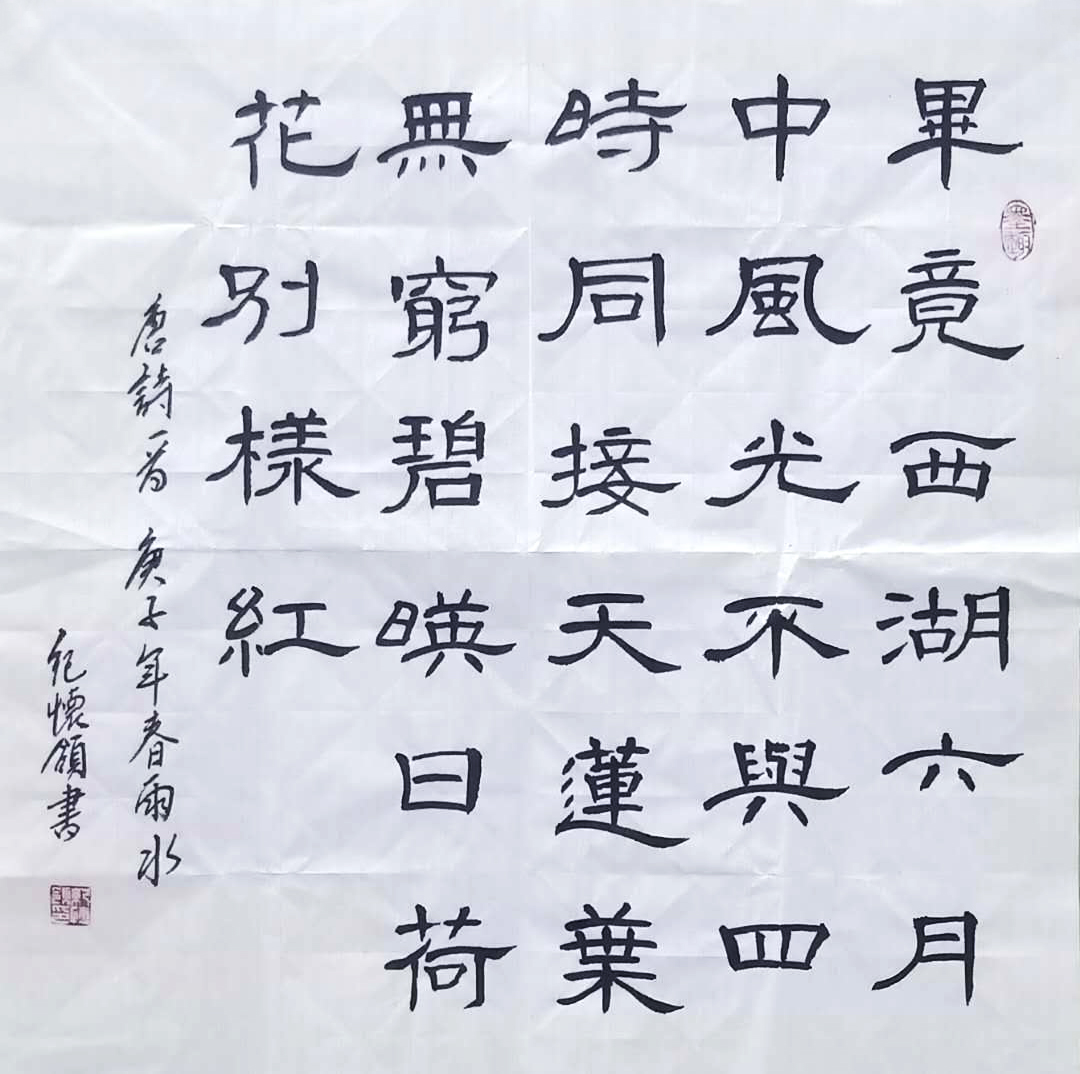 畢竟西湖六月
中風光不與四
時同接天蓮葉
無窮碧暎日荷
花別樣紅
唐詩一首 庚子年春雨水
紀懷領書